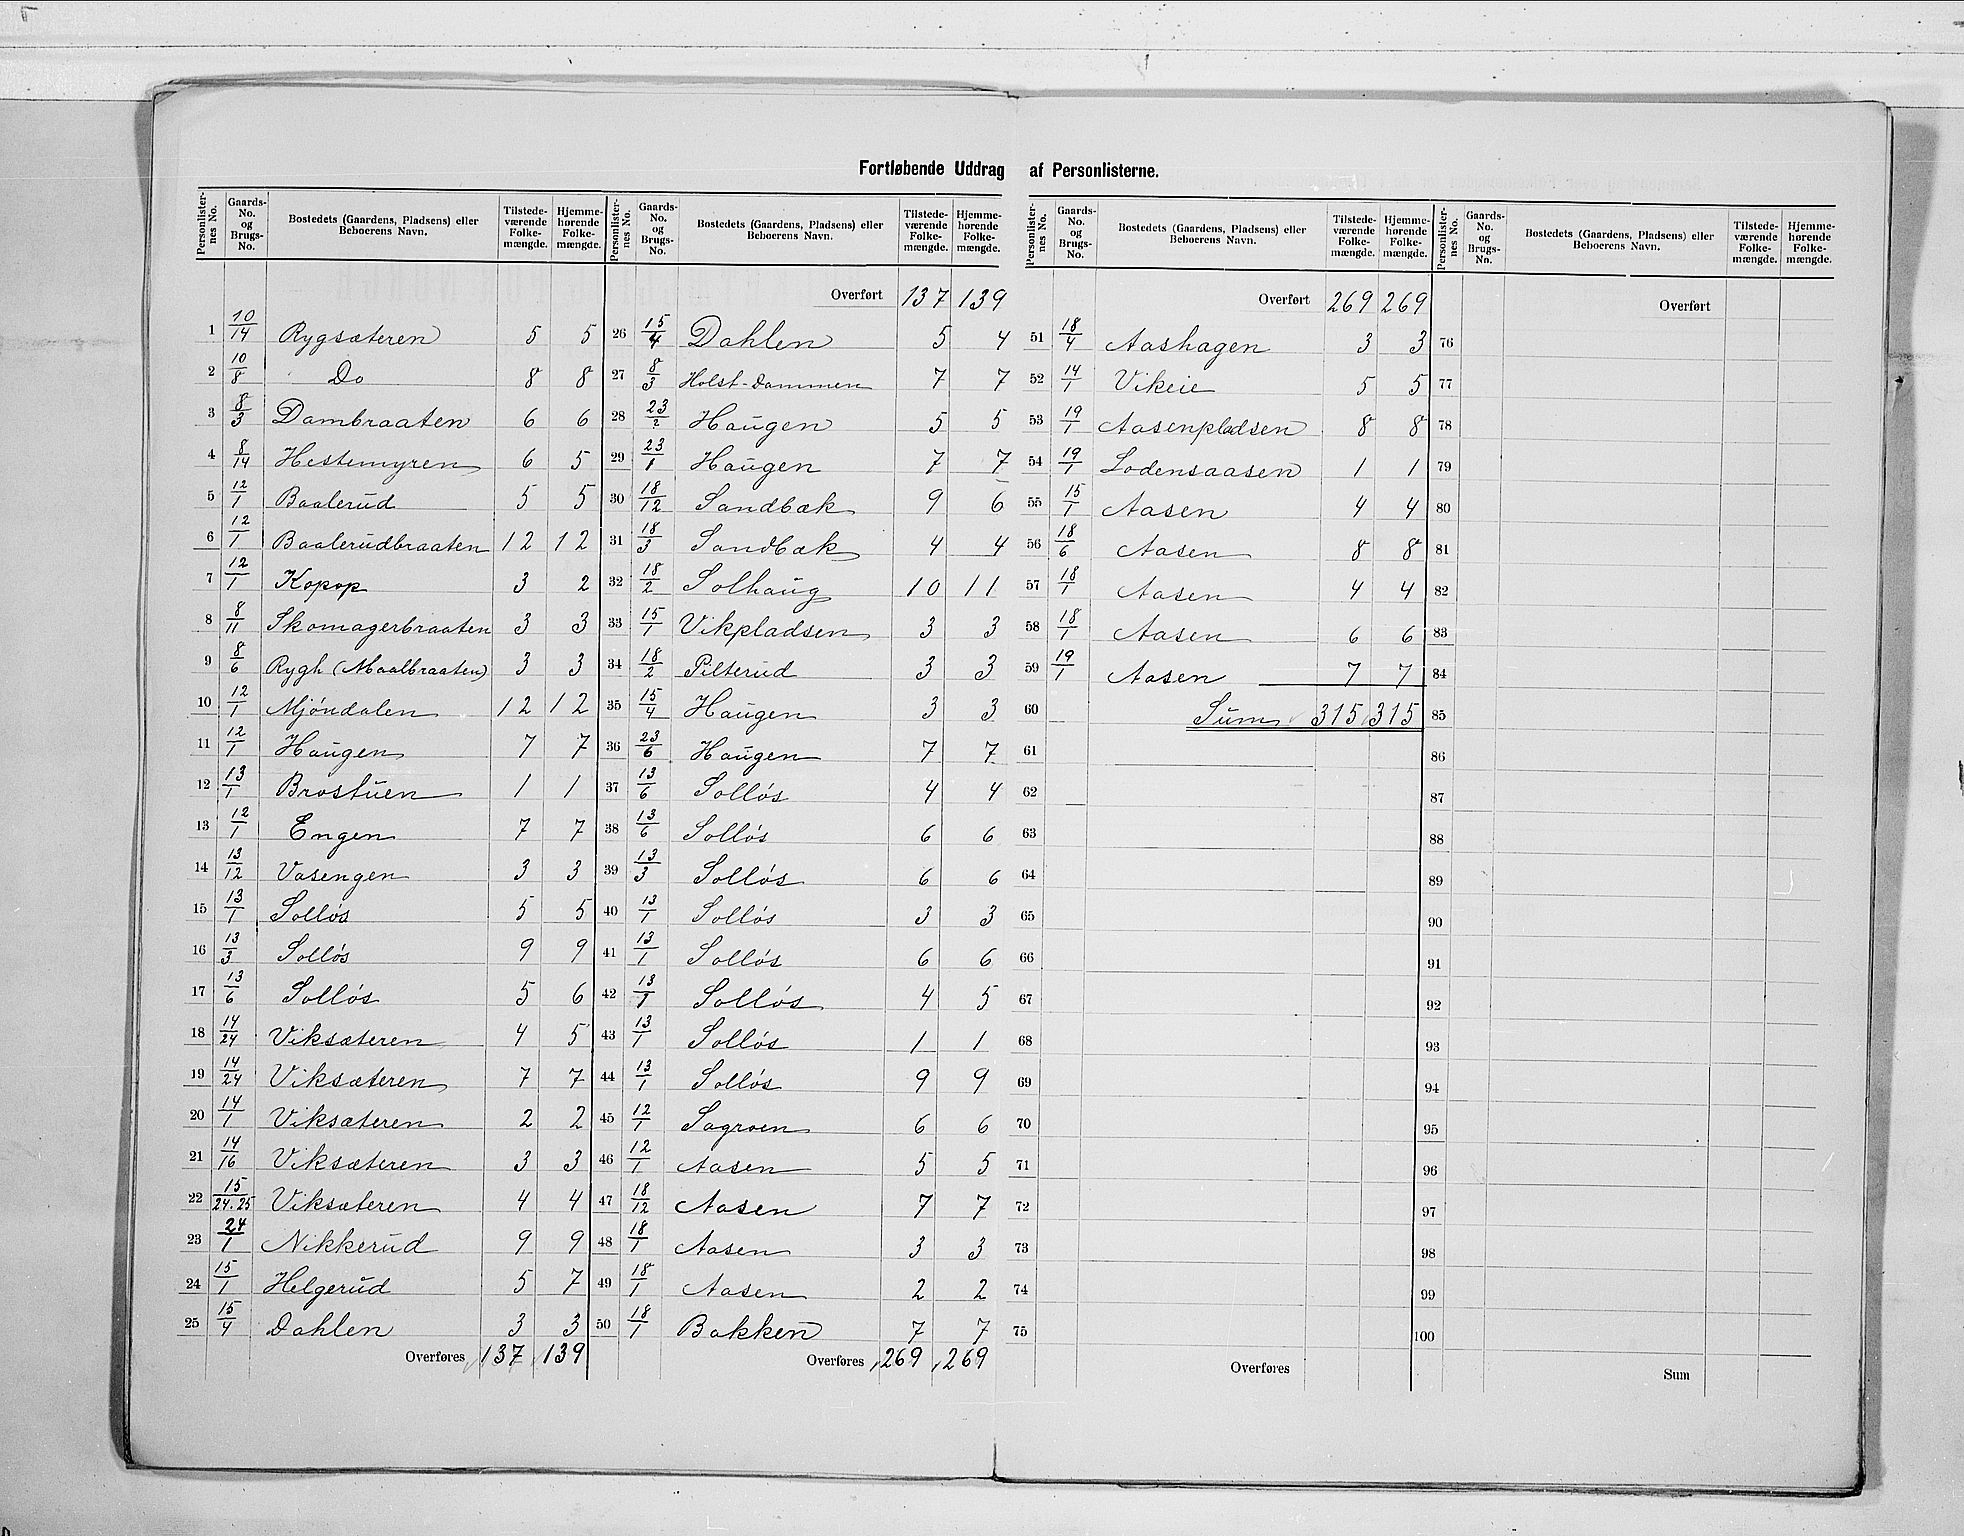 Fortløbende Uddrag af Personlisterne.
Personlisternes No. | Gaards-No. og Brugs-No. | Bostedets (Gaardens, Pladsens) eller Beboerens Navn. | Tilstedeværende Folkemængde. | Hjemmehørende Folkemængde.
1 10/14 Rygsæteren 5 5
2 10/8 Do 8 8
3 8/3 Dambraaten 6 6
4 8/14 Hestemyren 6 5
5 12/1 Baalerud 5 5
6 12/1 Baalerudbraaten 12 12
7 12/1 Kopop 3 2
8 8/11 Skomagerbraaten 3 3
9 8/6 Rygh (Maalbraaten) 3 3
10 12/1 Mjöndalen 12 12
11 12/1 Haugen 7 7
12 13/1 Brostuen 1 1
13 12/1 Engen 7 7
14 13/12 Vasengen 3 3
15 13/1 Sollós 5 5
16 13/3 Sollós 9 9
17 13/6 Sollós 5 6
18 14/24 Viksæteren 4 5
19 14/24 Viksæteren 7 7
20 14/1 Viksæteren 2 2
21 14/16 Viksæteren 3 3
22 15/24.25 Viksæteren 4 4
23 24/1 Nikkerud 9 9
24 15/1 Helgerud 5 7
25 15/4 Dahlen 3 3
Overføres 137 139
Personlisternes No. | Gaards-No. og Brugs-No. | Bostedets (Gaardens, Pladsens) eller Beboerens Navn. | Tilstedeværende Folkemængde. | Hjemmehørende Folkemængde.
Overført 137 139
26 15/4 Dahlen 5 4
27 8/3 Holst-Dammen 7 7
28 23/2 Haugen 5 5
29 23/1 Haugen 7 7
30 18/12 Sandbæk 9 6
31 18/3 Sandbæk 4 4
32 18/2 Solhaug 10 11
33 15/1 Vikpladsen 3 3
34 18/2 Pilterud 3 3
35 15/4 Haugen 3 3
36 23/6 Haugen 7 7
37 13/6 Sollós 4 4
38 13/6 Sollós 6 6
39 13/3 Sollós 6 6
40 13/1 Sollós 3 3
41 13/1 Sollós 6 6
42 13/1 Sollós 4 5
43 13/1 Sollós 1 1
44 13/1 Sollós 9 9
45 12/1 Sagroen 6 6
46 12/1 Aasen 5 5
47 18/12 Aasen 7 7
48 18/1 Aasen 3 3
49 18/1 Aasen 2 2
50 18/1 Bakken 7 7
Overføres 269 269
Personlisternes No. | Gaards-No. og Brugs-No. | Bostedets (Gaardens, Pladsens) eller Beboerens Navn. | Tilstedeværende Folkemængde. | Hjemmehørende Folkemængde.
Overført 269 269
51 18/4 Aashagen 3 3
52 14/1 Vikeie 5 5
53 19/1 Aasenpladsen 8 8
54 19/1 Lodensaasen 1 1
55 15/1 Aasen 4 4
56 18/6 Aasen 8 8
57 18/1 Aasen 4 4
58 18/1 Aasen 6 6
59 19/1 Aasen 7 7
60 Sum 315 315
61
62
63
64
65
66
67
68
69
70
71
72
73
74
75
Overføres
Personlisternes No. | Gaards-No. og Brugs-No. | Bostedets (Gaardens, Pladsens) eller Beboerens Navn. | Tilstedeværende Folkemængde. | Hjemmehørende Folkemængde.
Overført
76
77
78
79
80
81
82
83
84
85
86
87
88
89
90
91
92
93
94
95
96
97
98
99
100
Sum